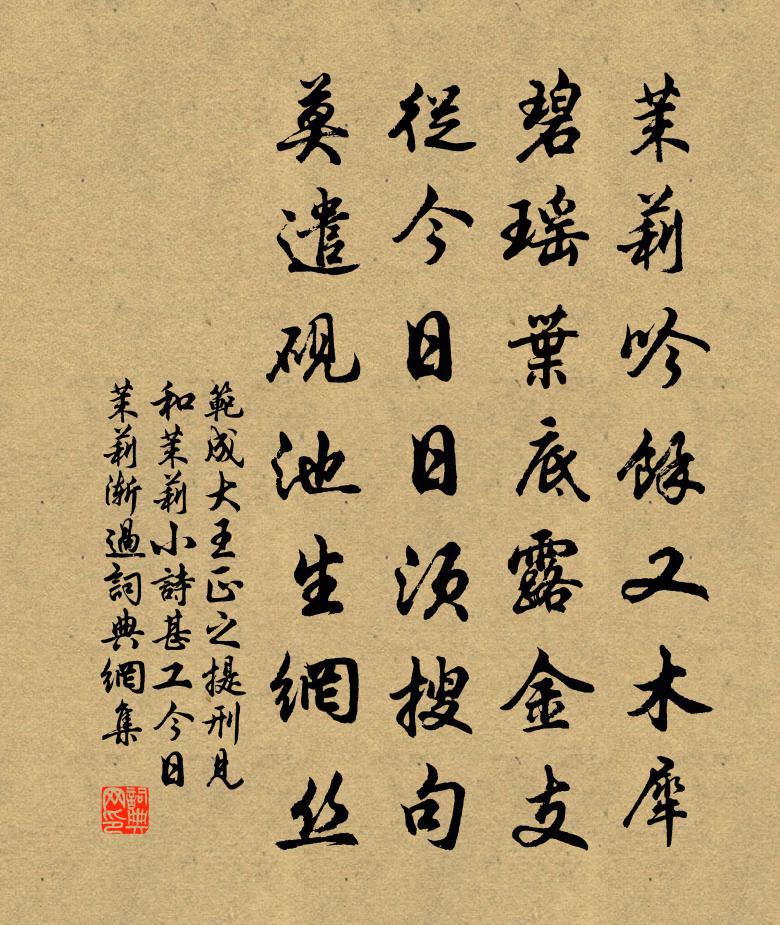 茉莉吟餘又木犀
碧瑶葉底露金支
從今日日須搜句
莫遣硯池生網丝
範成大王正之提刑見
和茉莉小詩甚工今日
茉莉漸過詞典網集
詞典
网印